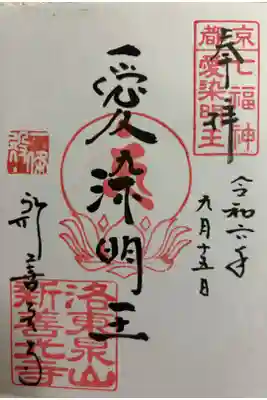 京
都 七福神
愛染明王
奉拝
令和六年
九月十五日
愛染明王
新善光寺
洛東泉山
新善光寺